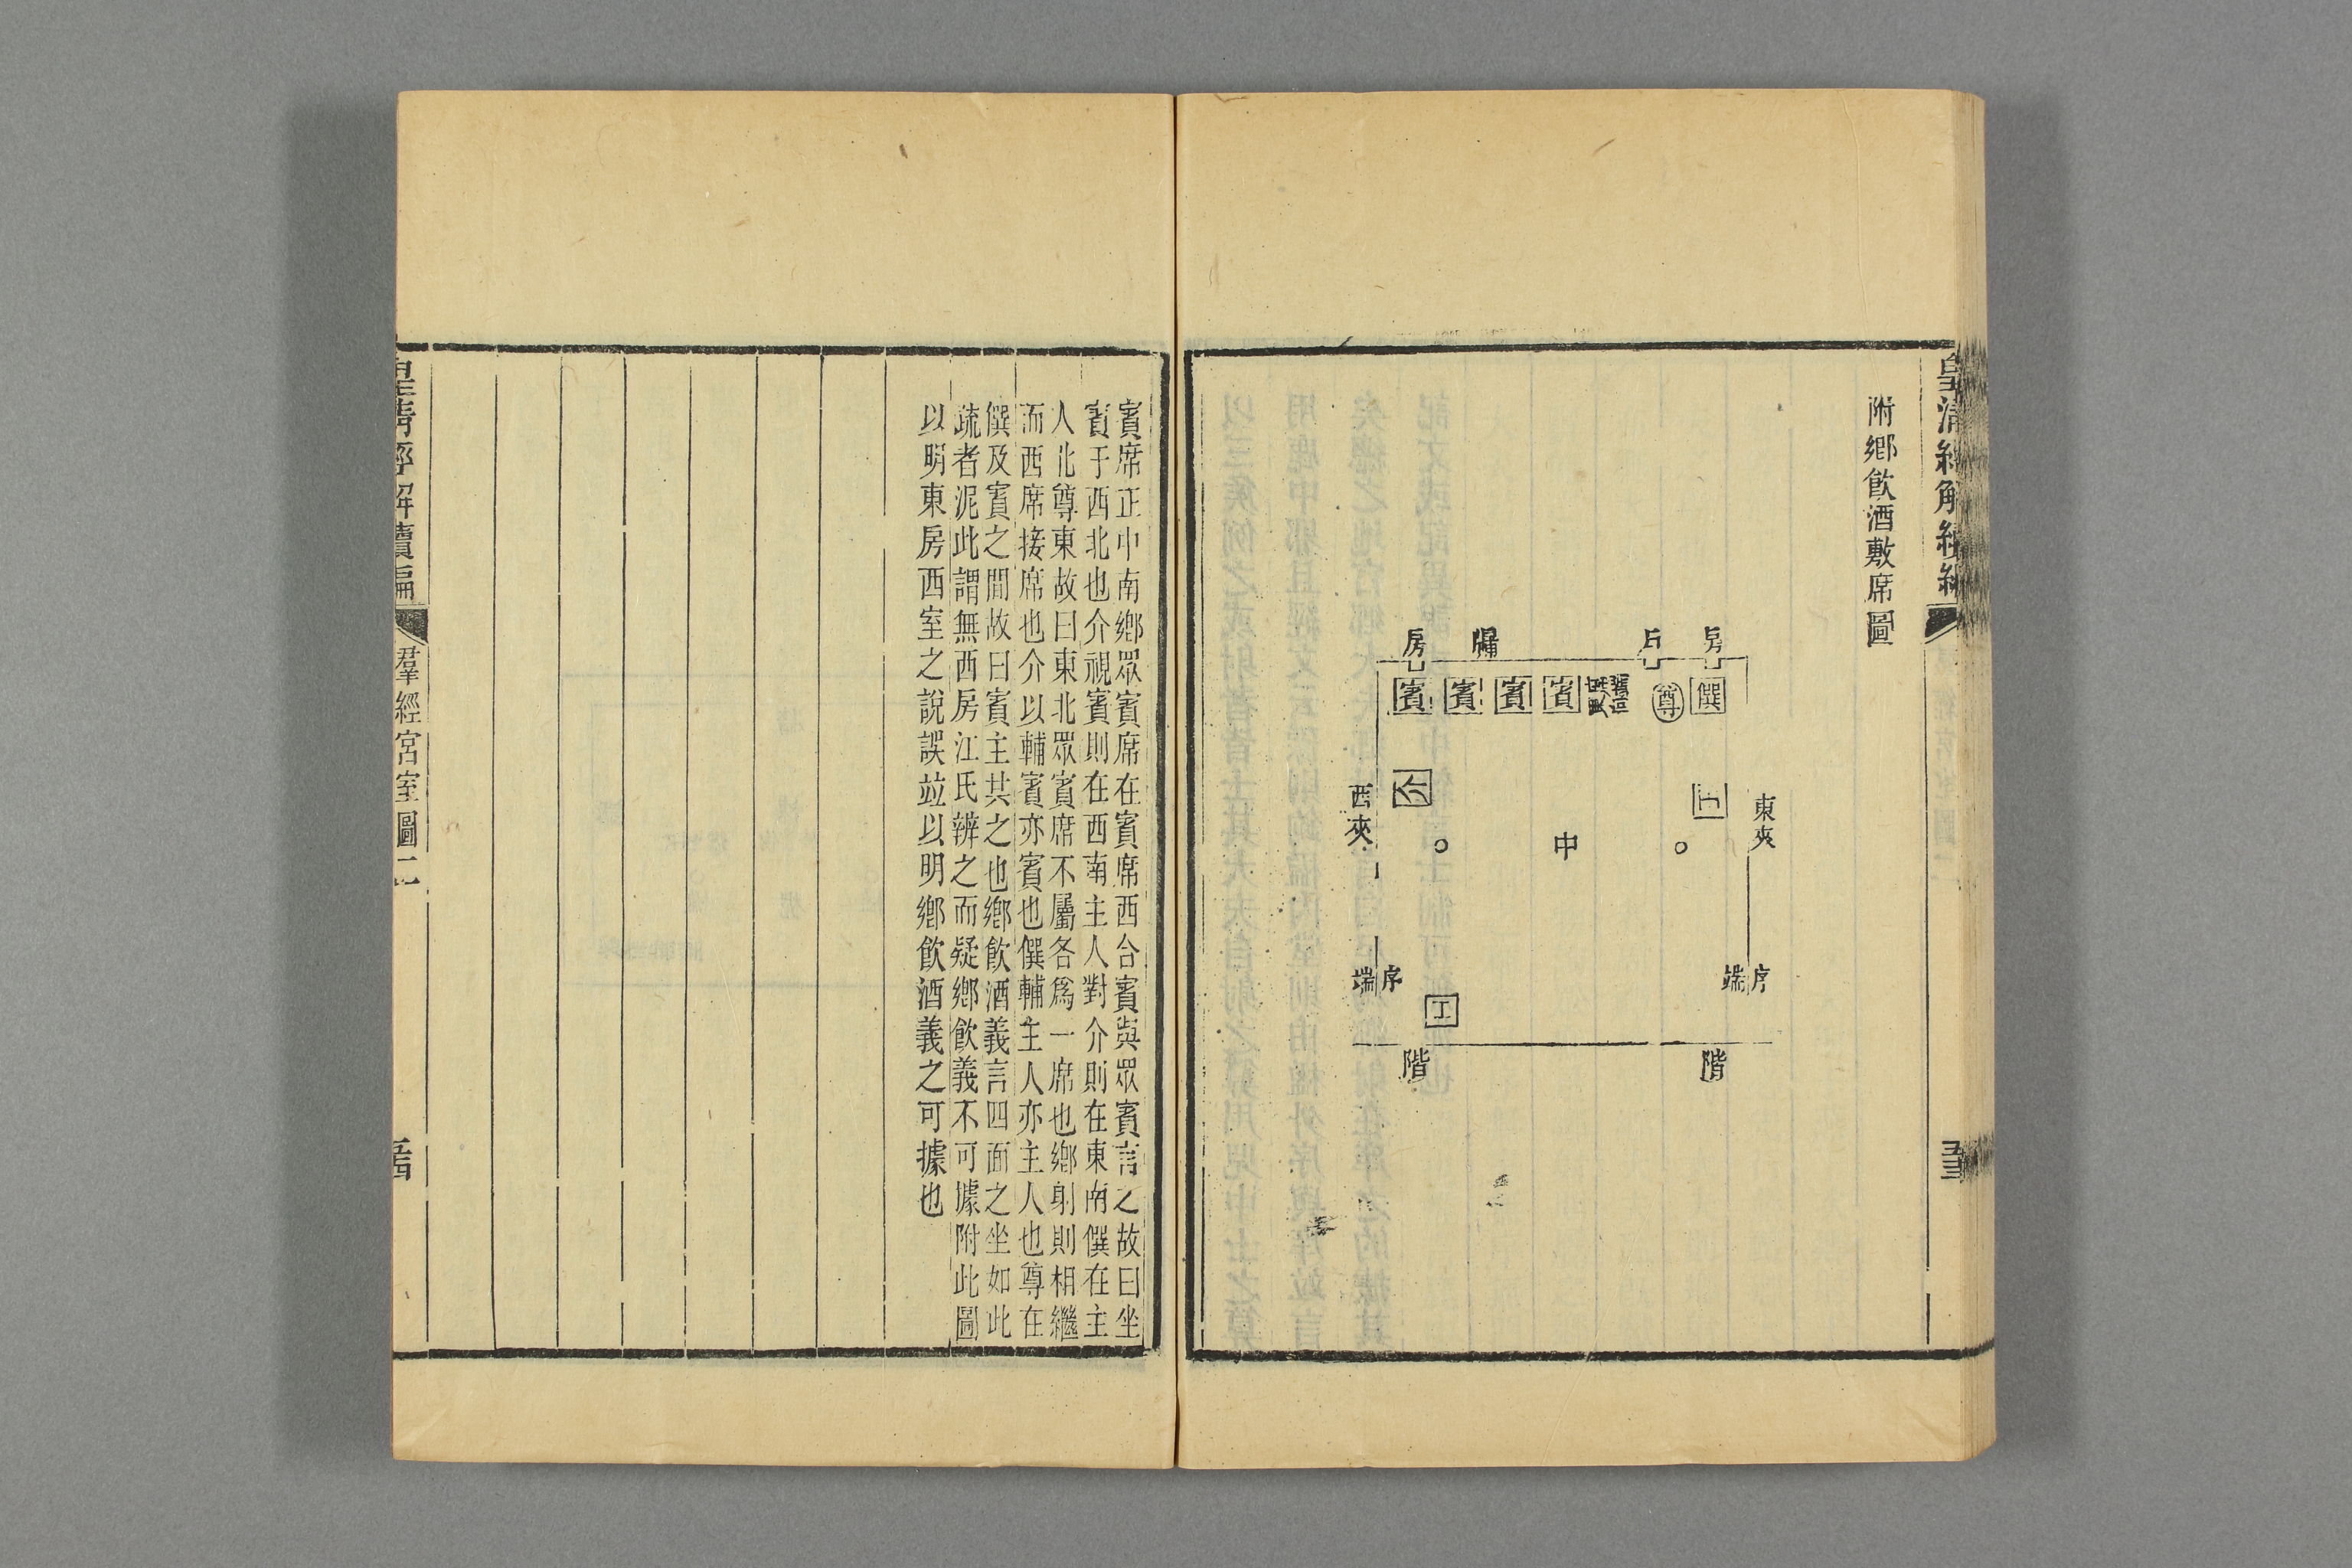 皇清經解續編
附鄉飲酒敷席圖
房
戶
牖
房
僎
尊
賓
賓
賓
賓
東夾
主
中
介
西夾
序端
序端
工
階
階
賓席正中南鄉眾賓席在賓席西合賓與眾賓言之故曰坐
賓于西北也介視賓則在西南主人對介則在東南僎在主
人北尊東故曰東北眾賓席不屬各爲一席也鄉射則相繼
而西席接席也介以輔賓亦賓也僎輔主人亦主人也尊在
僎及賓之間故曰賓主共之也鄉飲酒義言四面之坐如此
疏者泥此謂無西房江氏辨之而疑鄉飲義不可據附此圖
以明東房西室之說誤竝以明鄉飲酒義之可據也
皇清經解續編
羣經宮室圖二